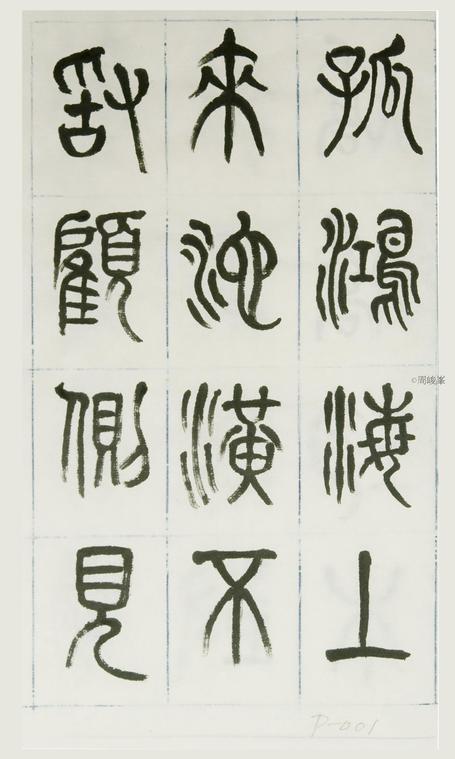 孤鴻海上
來池潢不
敢顧側見
©周峻峯
P-001